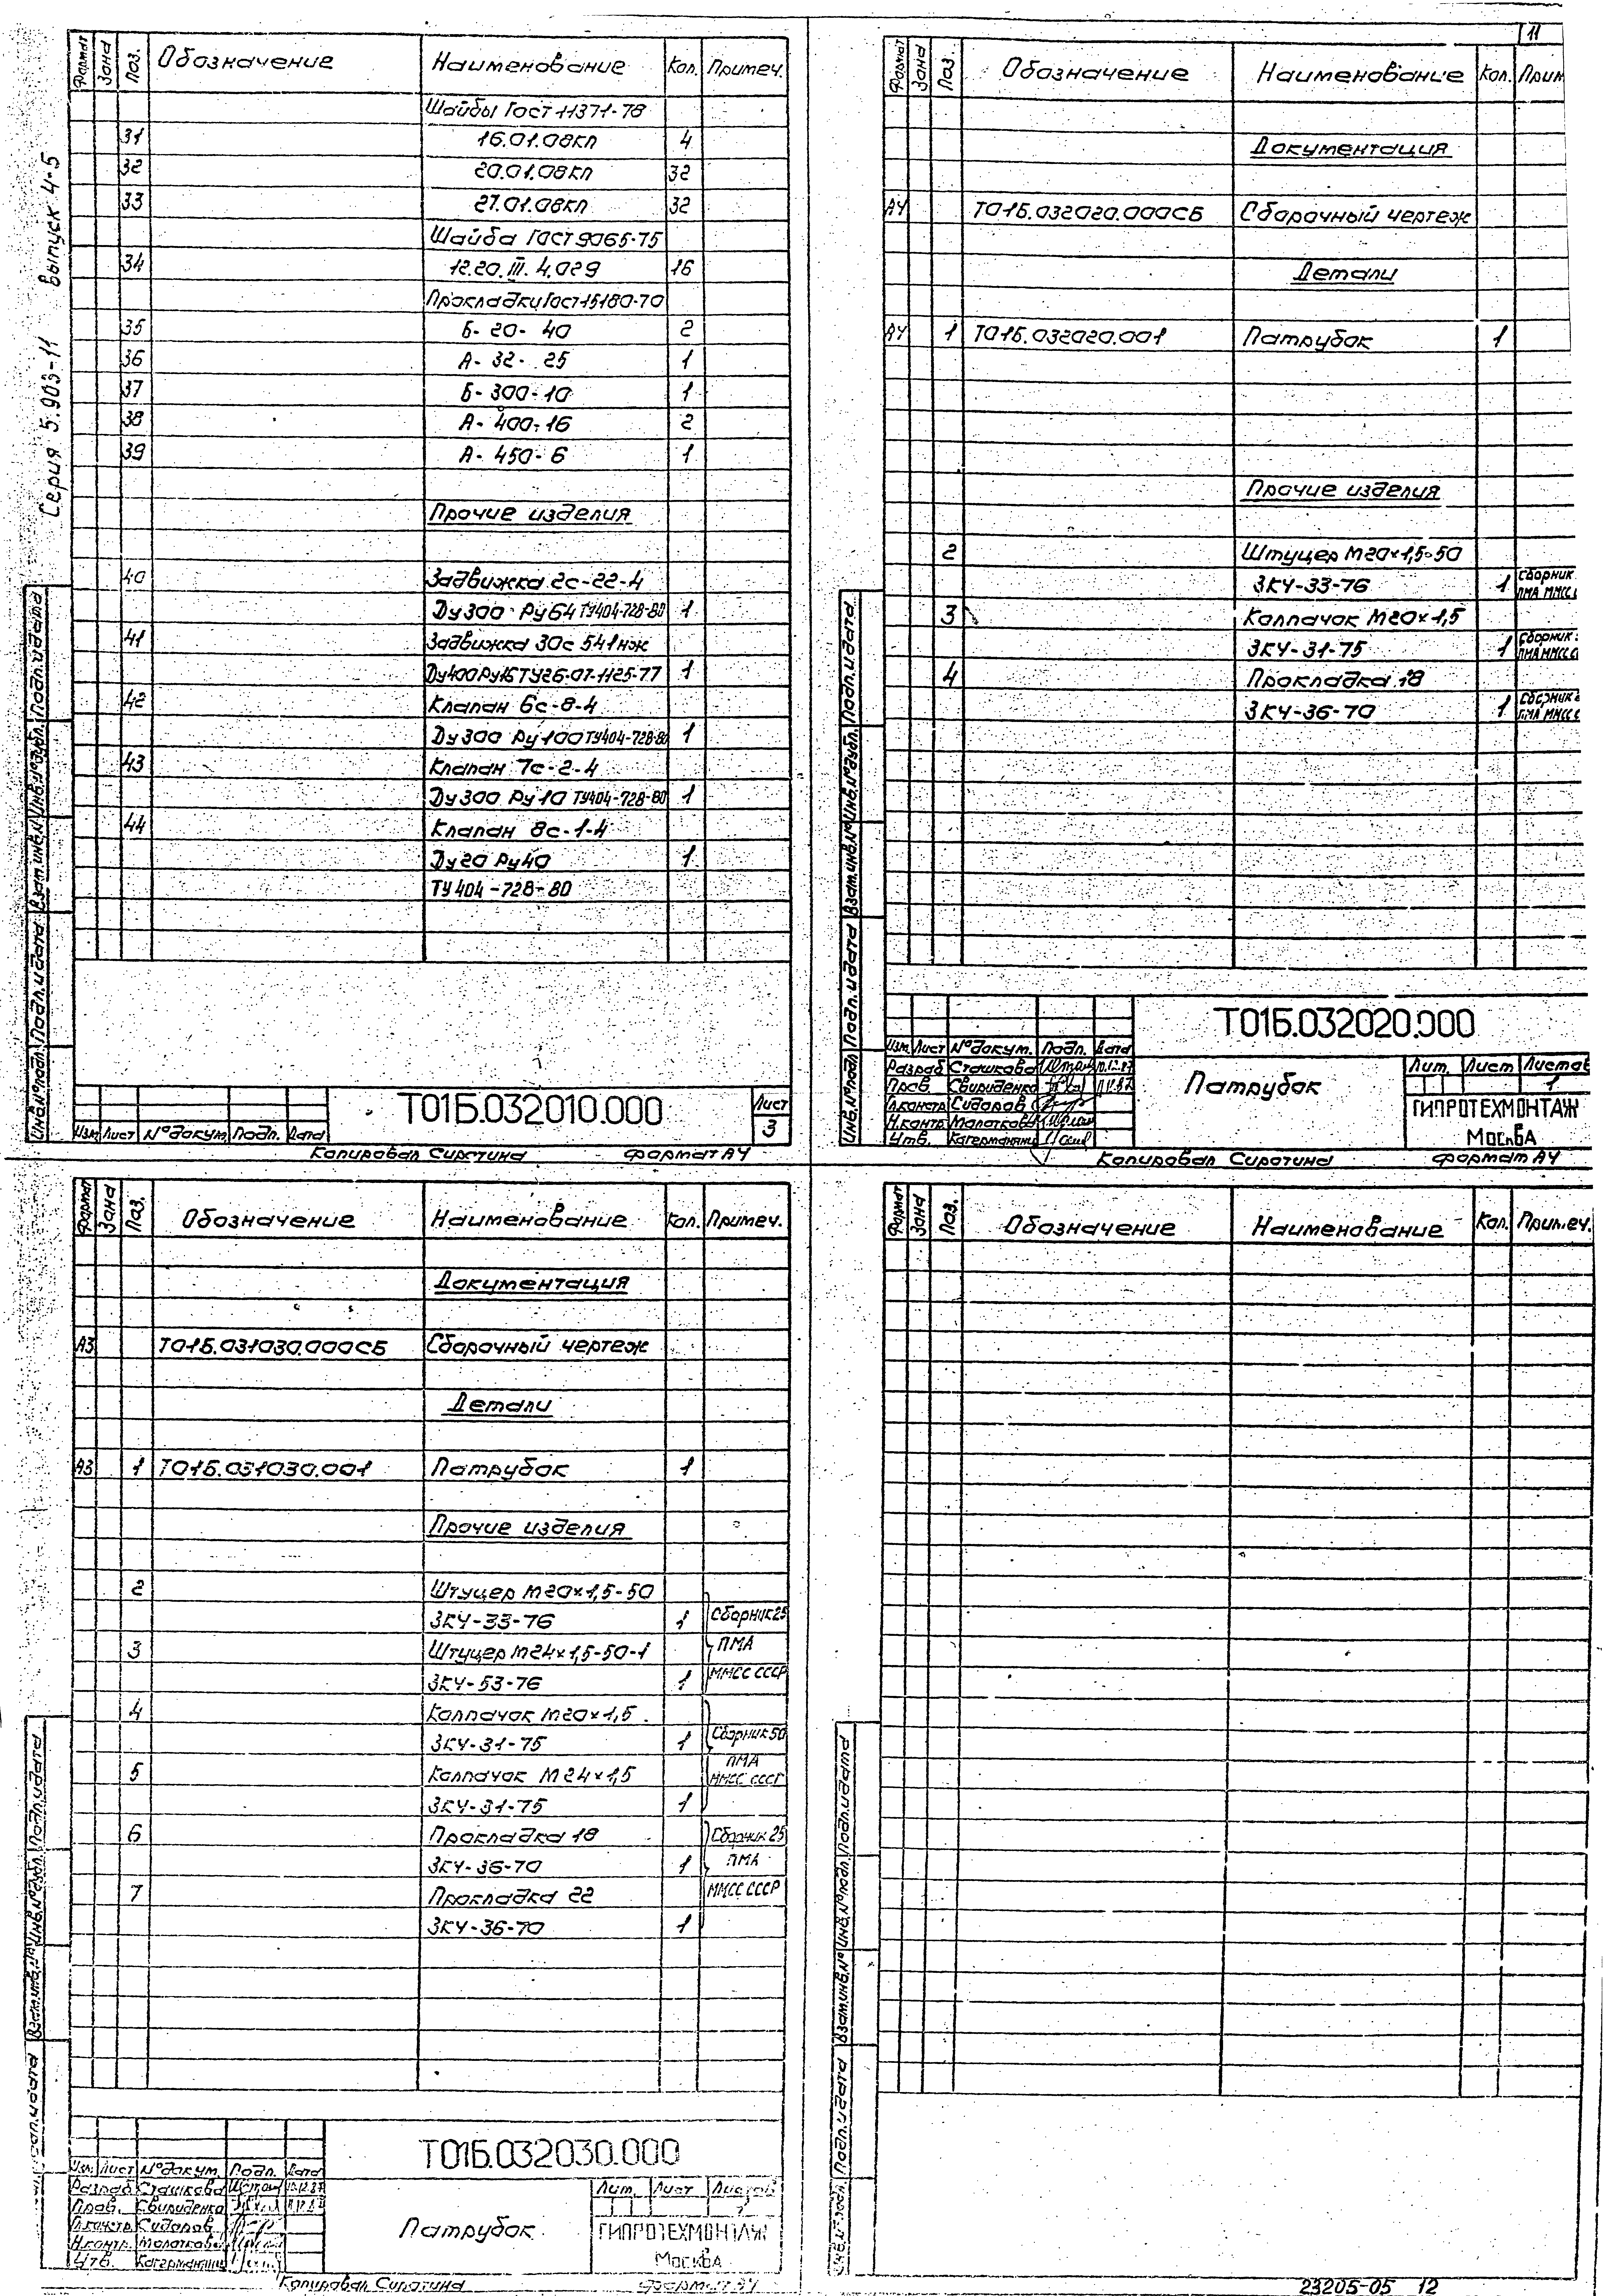 Серия 5.903-11 выпуск 4-5
Формат Зона Поз. Обозначение Наименование Кол. Примеч.
Шайбы Гост 11371-78
31 16.01.08кп 4
32 20.01.08кп 32
33 27.01.08кп 32
Шайба ГОСТ 9065-75
34 12.20.III.4.029 16
Прокладки Гост 15180-70
35 Б-20-40 2
36 А-32-25 1
37 Б-300-10 1
38 А-400-16 2
39 А-450-6 1
Прочие изделия
40 Задвижка 2с-22-4
Ду300 Ру64 ТУ404-728-80 1
41 Задвижка 30с 541нж
Ду400Ру16 ТУ26-07-1125-77 1
42 Клапан 6с-8-4
Ду300 Ру100 ТУ404-728-80 1
43 Клапан 7с-2-4
Ду300 Ру10 ТУ404-728-80 1
44 Клапан 8с-1-4
Ду20 Ру40 1
ТУ404-728-80
Инв.№подл. Подп. и дата Взам.инв.№ Инв.№дубл. Подп. и дата
Изм Лист №докум. Подп. Дата
Т01Б.032010.000
Лист
3
Копировал Сиротина формат А4
11
Формат Зона Поз. Обозначение Наименование Кол. Прим
Документация
А4 Т01Б.032020.000СБ Сборочный чертеж
Детали
А4 1 Т01Б.032020.001 Патрубок 1
Прочие изделия
2 Штуцер М20×1,5-50
ЗК4-33-76 1 Сборник
ПМА ММСС
3 Колпачок М20×1,5
ЗК4-31-75 1 Сборник
ПМА ММСС
4 Прокладка 18
ЗК4-36-70 1 Сборник
ПМА ММСС
Инв.№подл. Подп. и дата Взам.инв.№ Инв.№дубл. Подп. и дата
Т01Б.032020.000
Изм Лист №докум. Подп. Дата
Разраб Сташкова
Пров. Свириденко
Гл.констр Сидоров
Н.контр Молоткова
Утв.
Патрубок
Лит. Лист Листов
1
ГИПРОТЕХМОНТАЖ
Москва
Копировал Сиротина формат А4
Формат Зона Поз. Обозначение Наименование Кол. Примеч.
Документация
А3 Т01Б.031030.000СБ Сборочный чертеж
Детали
А3 1 Т01Б.031030.001 Патрубок 1
Прочие изделия
2 Штуцер М20×1,5-50
ЗК4-33-76 1 Сборник25
3 Штуцер М24×1,5-50-1 ПМА
ЗК4-53-76 1 ММСС СССР
4 Колпачок М20×1,5
ЗК4-31-75 1 Сборник50
ПМА
5 Колпачок М24×1,5 ММСС СССР
ЗК4-31-75 1
6 Прокладка 18 Сборник 25
ЗК4-36-70 1 ПМА
7 Прокладка 22 ММСС СССР
ЗК4-36-70 1
Подп. и дата Взам.инв.№ Инв.№дубл. Подп. и дата
Т01Б.032030.000
Изм. Лист №докум. Подп. Дата
Разраб Сташкова
Пров. Свириденко
Гл.констр Сидоров
Н.контр. Молоткова
Утв.
Патрубок
Лит. Лист Листов
ГИПРОТЕХМОНТАЖ
Москва
Копировал Сиротина формат А4
Формат Зона Поз. Обозначение Наименование Кол. Примеч.
Инв.№подл. Подп. и дата Взам.инв.№ Инв.№подл. Подп. и дата
23205-05 12